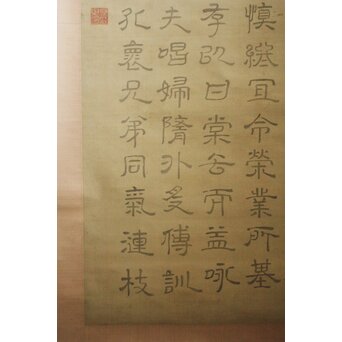 慎終宜令榮業所基
存以甘棠去而益詠
夫唱婦隨外受傅訓
孔懷兄弟同氣連枝